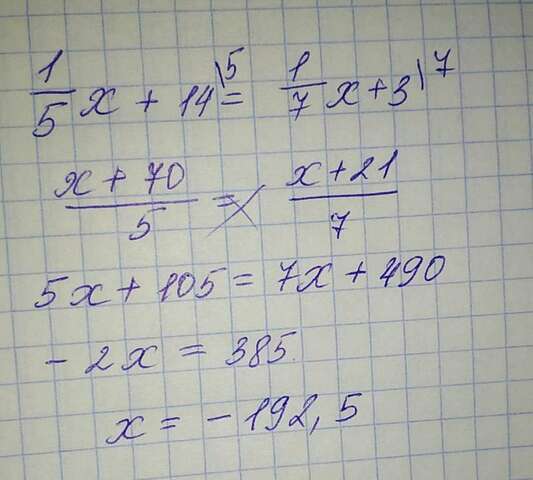 1/5 x + 14\5 = 1/7 x + 3\7
x + 70 / 5 = x + 21 / 7
5x + 105 = 7x + 490
- 2x = 385
x = - 192,5